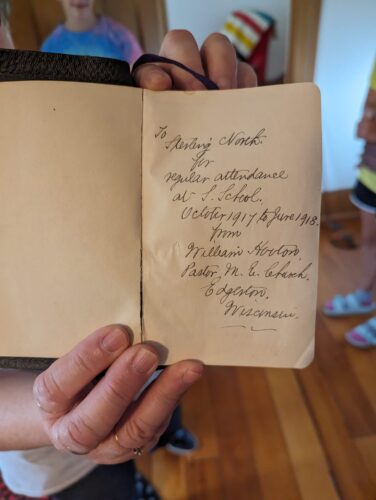 To
Sterling North.
for
regular attendance
at S. School.
October 1917 to June 1918.
from
William Hooton,
Pastor, M. E. Church.
Edgerton,
Wisconsin.